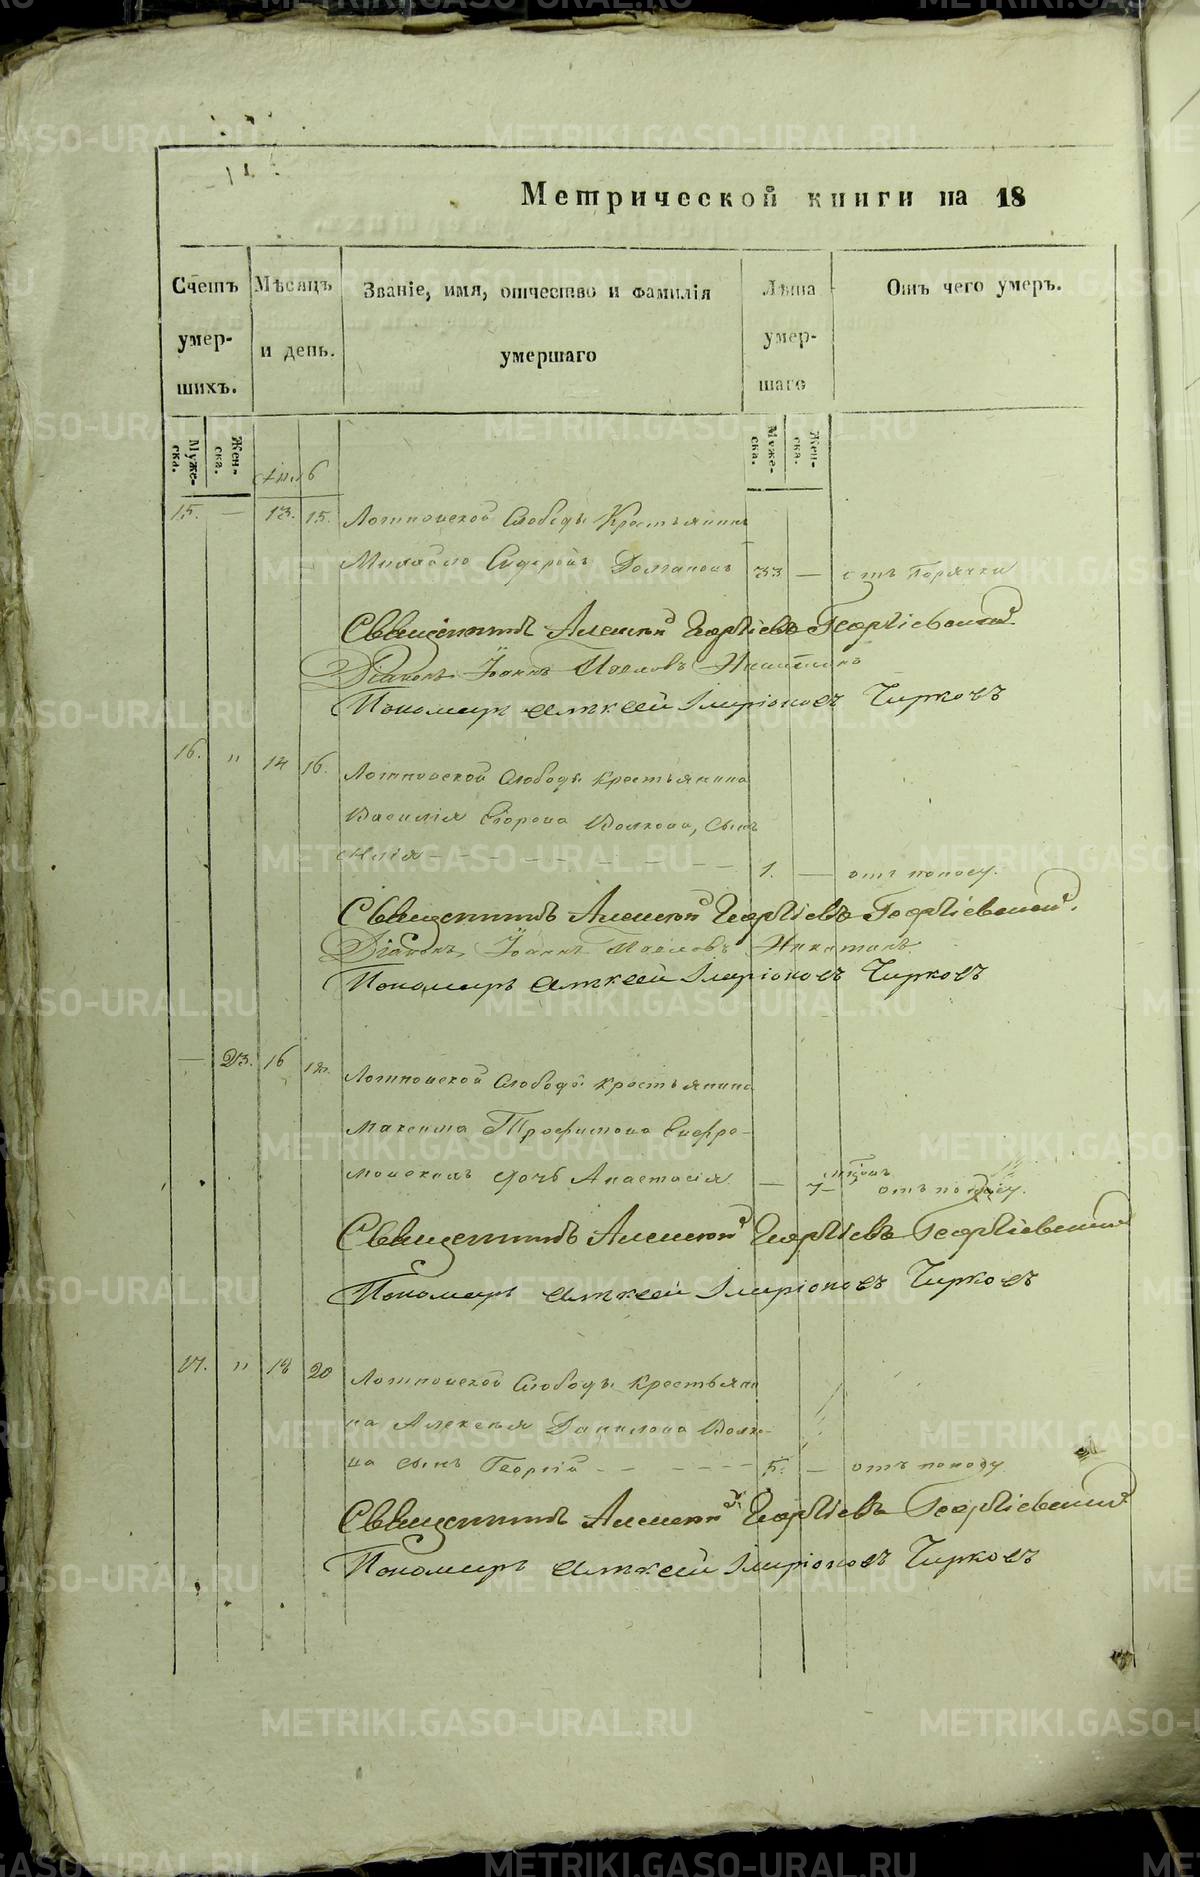 Метрической книги на 18
Счетъ умершихъ.
Мѣсяцъ и день.
Званіе, имя, отчество и фамилія умершаго
Лѣта умершаго
Отъ чего умеръ.
Мужеска.
Женска.
Мужеска.
Женска.
15. — 13. 15. Слободы Крестьянинъ
Михайло Сидоровъ 33 — отъ Горячки
Священникъ Алексѣй Георгіевъ Георгіевскій
Діаконъ Іоаннъ Павловъ Никитинъ
Пономарь Алексѣй Иларіоновъ Чирковъ
16. " 14 16. Слободы крестьянина
Василія Егорова Волкова, сынъ
Илія — — — 1. — отъ поносу.
Священникъ Алексѣй Георгіевъ Георгіевскій.
Діаконъ Іоаннъ Павловъ Никитинъ
Пономарь Алексѣй Иларіоновъ Чирковъ
— 23. 16 Слободы крестьянина
Максима Трофимова
дочь Анастасія. — 7 отъ поносу.
Священникъ Алексѣй Георгіевъ Георгіевскій
Пономарь Алексѣй Иларіоновъ Чирковъ
17. " 18 20 Слободы Крестьяни
на Алексѣя Данилова Волко-
ва сынъ Георгій — — — 5. — отъ поносу
Священникъ Алексѣй Георгіевъ Георгіевскій
Пономарь Алексѣй Иларіоновъ Чирковъ
METRIKI.GASO-URAL.RU